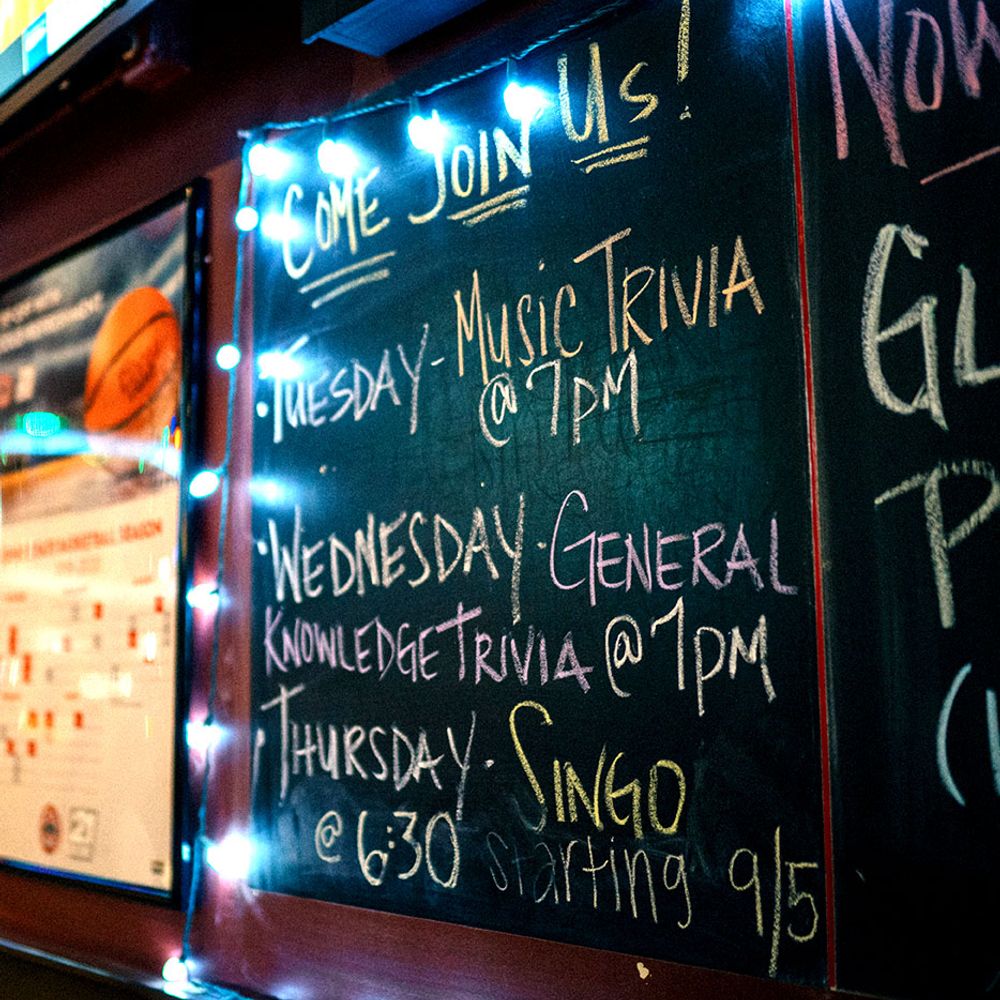 Come Join Us!
·Tuesday- Music Trivia
@ 7pm
·Wednesday· General
Knowledge Trivia @ 7pm
·Thursday· Singo
@ 6:30 starting 9/5
Now
GL
P
BASKETBALL SEASON